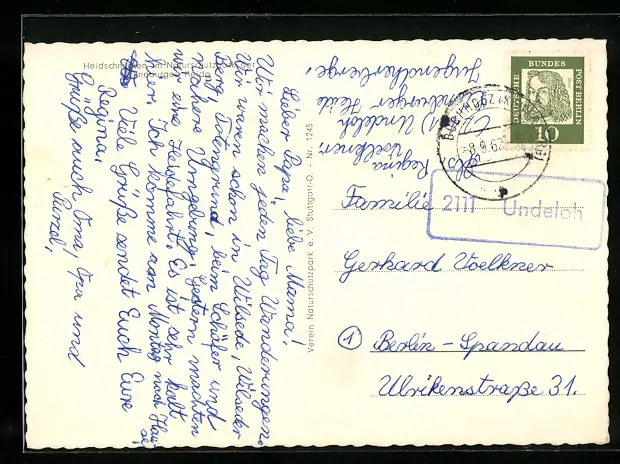 Heidschnucken im Naturschutzpark der
Lüneburger Heide
Lieber Papa, liebe Mama!
Wir machen jeden Tag Wanderungen.
Wir waren schon in Wilsede, Wilseder
Berg, Totengrund, beim Schäfer und
nähere Umgebung. Gestern machten
wir eine Heidefahrt. Es ist sehr kalt
hier. Ich komme am Montag nach Hau
se.
Viele Grüße sendet Euch Eure
Regina.
Grüße auch Oma, Ina und
Verein Naturschutzpark e. V. Stuttgart-O. - Nr. 1245
Abs. Regina
Voelkner
Undeloh
Lüneburger Heide
Jugendherberge.
DEUTSCHE BUNDES POST BERLIN
10
-8.9.62
2111 Undeloh
Familie
Gerhard Voelkner
1 Berlin-Spandau
Ulrikenstraße 31.